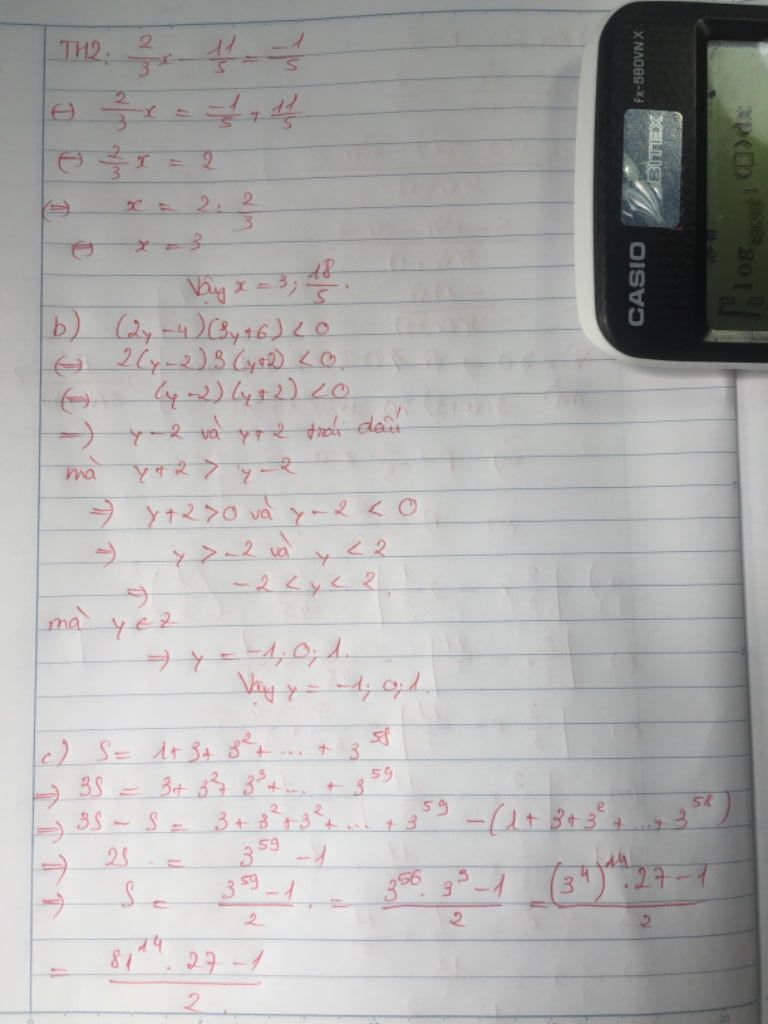 TH2: 2/3 x - 11/5 = -1/5
(=) 2/3 x = -1/5 + 11/5
(=) 2/3 x = 2
(=) x = 2 : 2/3
(=) x = 3
Vậy x = 3; 18/5.
b) (2y-4)(3y+6) < 0
(=) 2(y-2)3(y+2) < 0.
(=) (y-2)(y+2) < 0
=) y-2 và y+2 trái dấu
mà y+2 > y-2
=) y+2 > 0 và y-2 < 0
=) y > -2 và y < 2
=) -2 < y < 2.
mà y ∈ Z
=) y = -1; 0; 1.
Vậy y = -1; 0; 1.
c) S = 1+3+3²+...+3⁵⁸
=) 3S = 3+3²+3³+...+3⁵⁹
=) 3S - S = 3+3²+3²+...+3⁵⁹ - (1+3+3²+...+3⁵⁸)
=) 2S = 3⁵⁹ - 1
=) S = (3⁵⁹-1)/2 . = (3⁵⁶.3³-1)/2 = ((3⁴)¹⁴.27-1)/2
= (81¹⁴.27-1)/2.
CASIO
BITEX
fx-580VN X